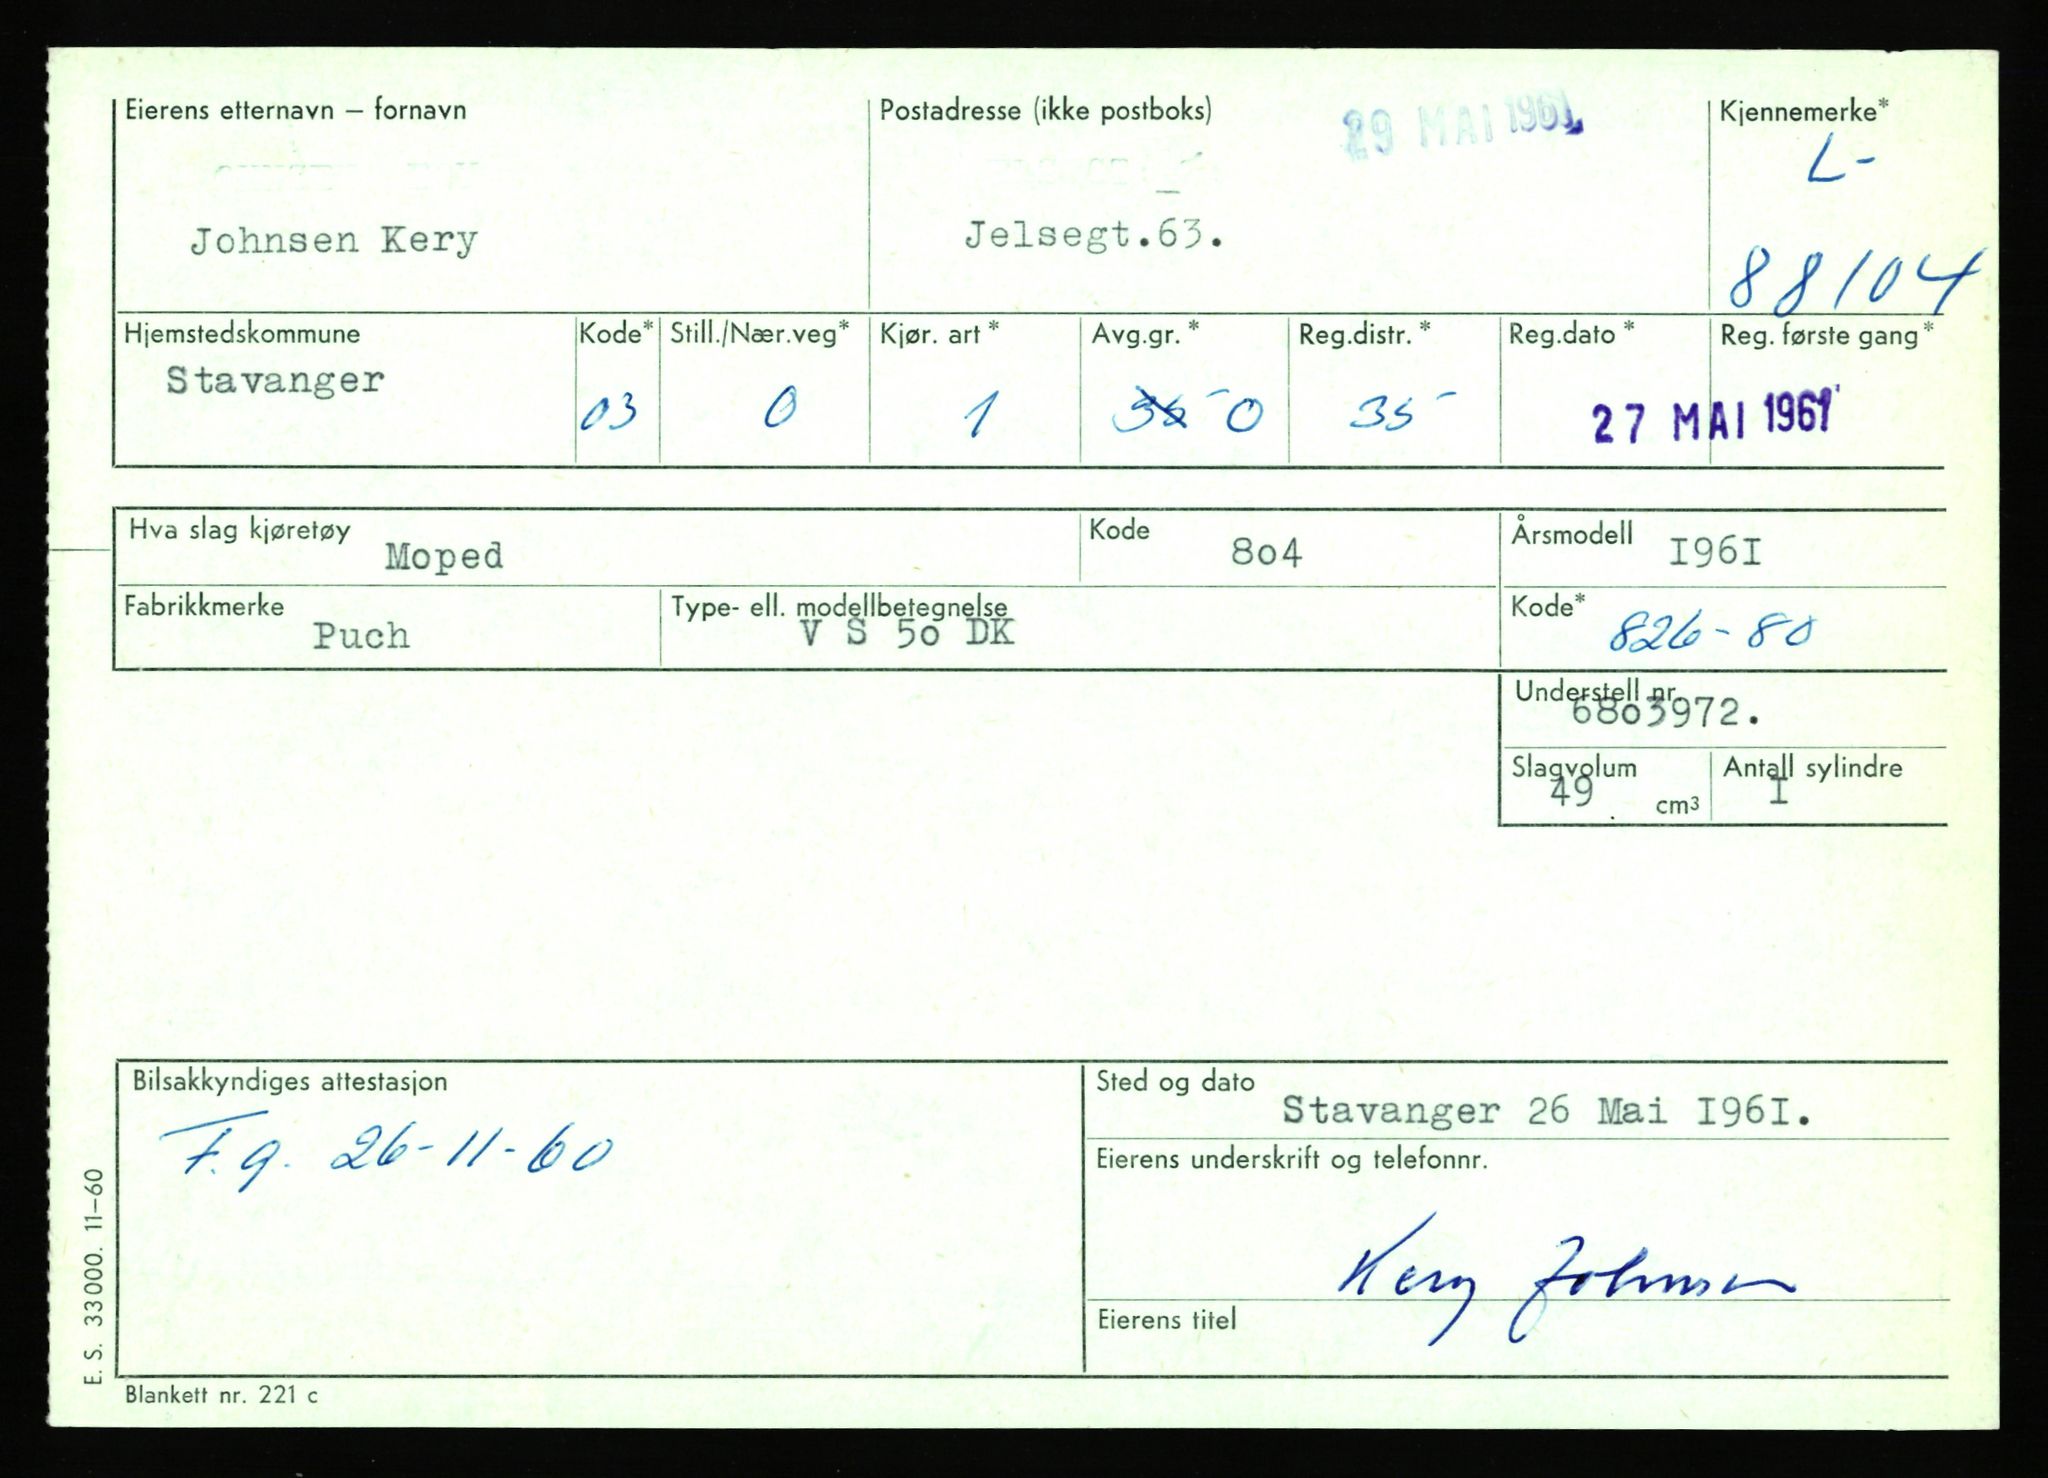 Eierens etternavn – fornavn
Postadresse (ikke postboks)
29 MAI 1961
Kjennemerke*
L-
Johnsen Kery
Jelsegt.63.
88104
Hjemstedskommune
Kode*
Still./Nær.veg*
Kjør. art *
Avg.gr. *
Reg.distr. *
Reg.dato *
Reg. første gang *
Stavanger
03
0
1
0
35
27 MAI 1961
Hva slag kjøretøy
Moped
Kode
8o4
Årsmodell
I96I
Fabrikkmerke
Puch
Type- ell. modellbetegnelse
V S 5o DK
Kode*
826-80
Understell nr.
68o3972.
Slagvolum
49
cm3
Antall sylindre
I
Bilsakkyndiges attestasjon
F.g. 26-11-60
Sted og dato
Stavanger 26 Mai I96I.
Eierens underskrift og telefonnr.
Kery Johnsen
Eierens titel
Blankett nr. 221 c
E. S. 33000. 11–60